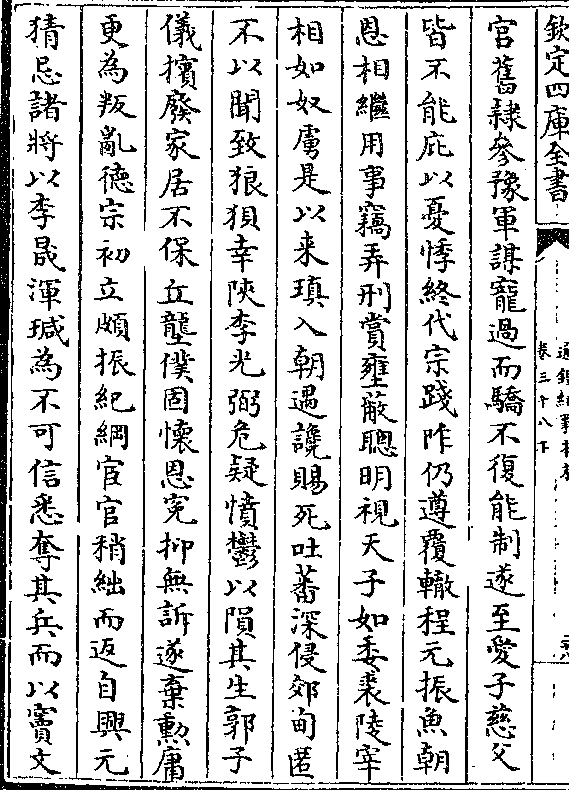 欽定四庫全書
卷三十八下
官舊隸參豫軍謀寵過而驕不復能制遂至愛子慈父
皆不能庇以憂悸終代宗踐阼仍遵覆轍程元振魚朝
恩相繼用事竊弄刑賞壅蔽聰明視天子如委裘陵宰
相如奴虜是以来瑱入朝遇讒賜死吐蕃深侵郊甸匿
不以聞致狼狽幸陜李光弼危疑憤鬱以隕其生郭子
儀擯廢家居不保丘壟僕固懷恩寃抑無訴遂棄勲庸
更為叛亂德宗初立頗振紀綱宦官稍絀而返自興元
猜忌諸將以李晟渾瑊為不可信悉奪其兵而以竇文